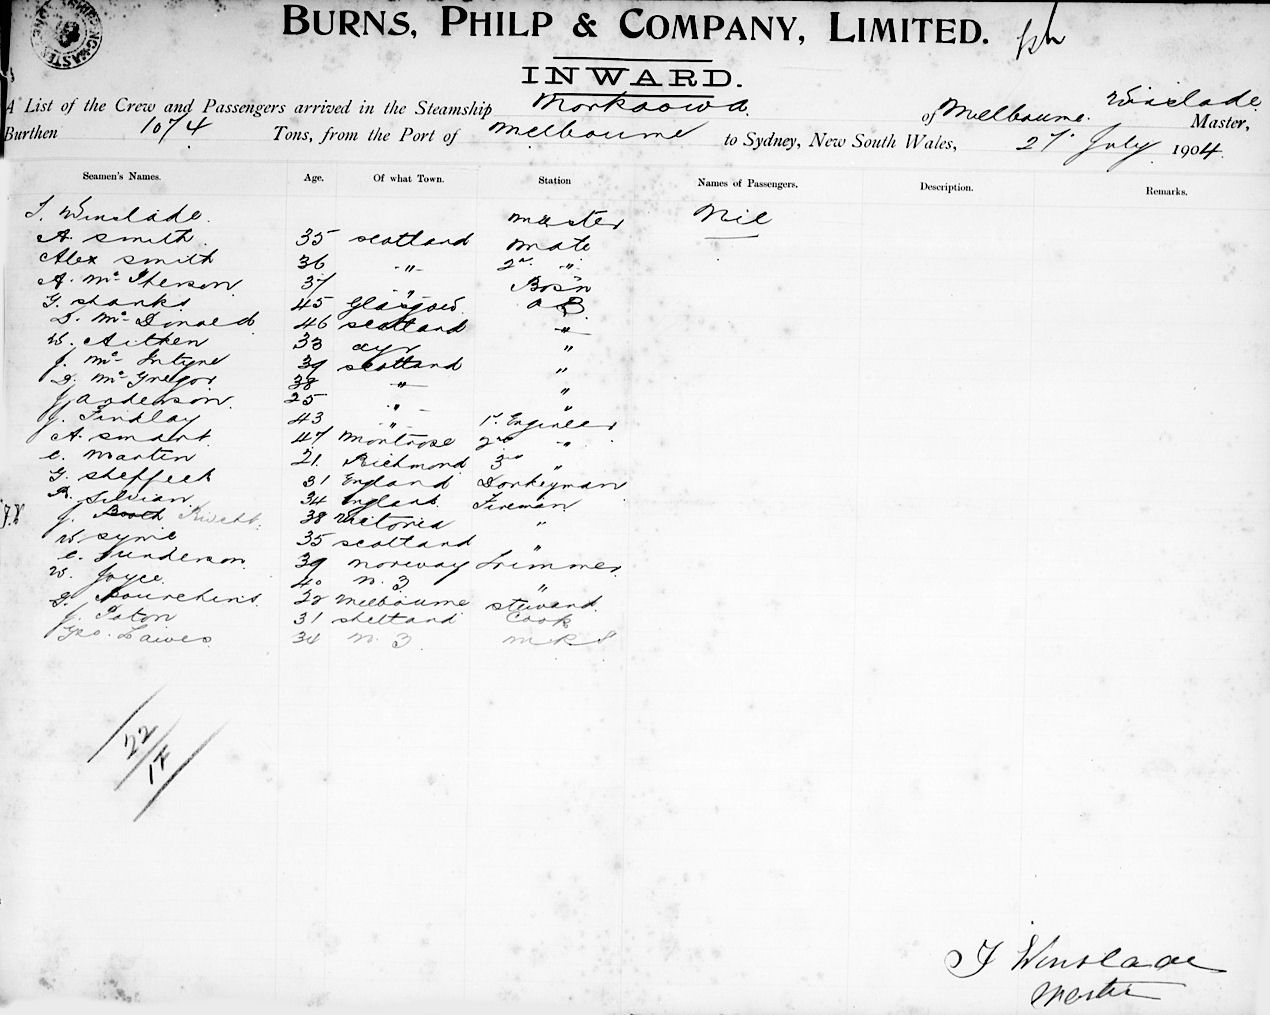 BURNS, PHILP & COMPANY, LIMITED.
INWARD.
A List of the Crew and Passengers arrived in the Steamship Moorkoowa of Melbourne. Winslade Master,
Burthen 1074 Tons, from the Port of Melbourne to Sydney, New South Wales, 27 July 1904.
Seamen's Names. Age. Of what Town. Station Names of Passengers. Description. Remarks.
Winslade. Master Nil
A. Smith 35 Scotland Mate
Alex Smith 36 -"- 2nd "
A. McPherson 37 " Bos'n
G. Shanks 45 Glasgow. AB
D. McDonald 46 Scotland "
W. Aitken 33 Ayr "
J. McIntyre 39 Scotland "
D. McGregor 38 " "
J Anderson 25 " "
J. Findlay 43 " 1st Engineer
A. Smart 47 Montrose 2nd "
C. Martin 21 Richmond 3rd "
G. 31 England Donkeyman
R. 34 England Fireman
J. Booth 38 Victoria "
W Syme 35 Scotland "
C. Gunderson 39 Norway Trimmer
W. Joyce 40 N. Z "
28 Melbourne Steward
J. Paton 31 Shetland Cook
Geo. Lawes 34 N. Z M R S
22/17
J Winslade
Master